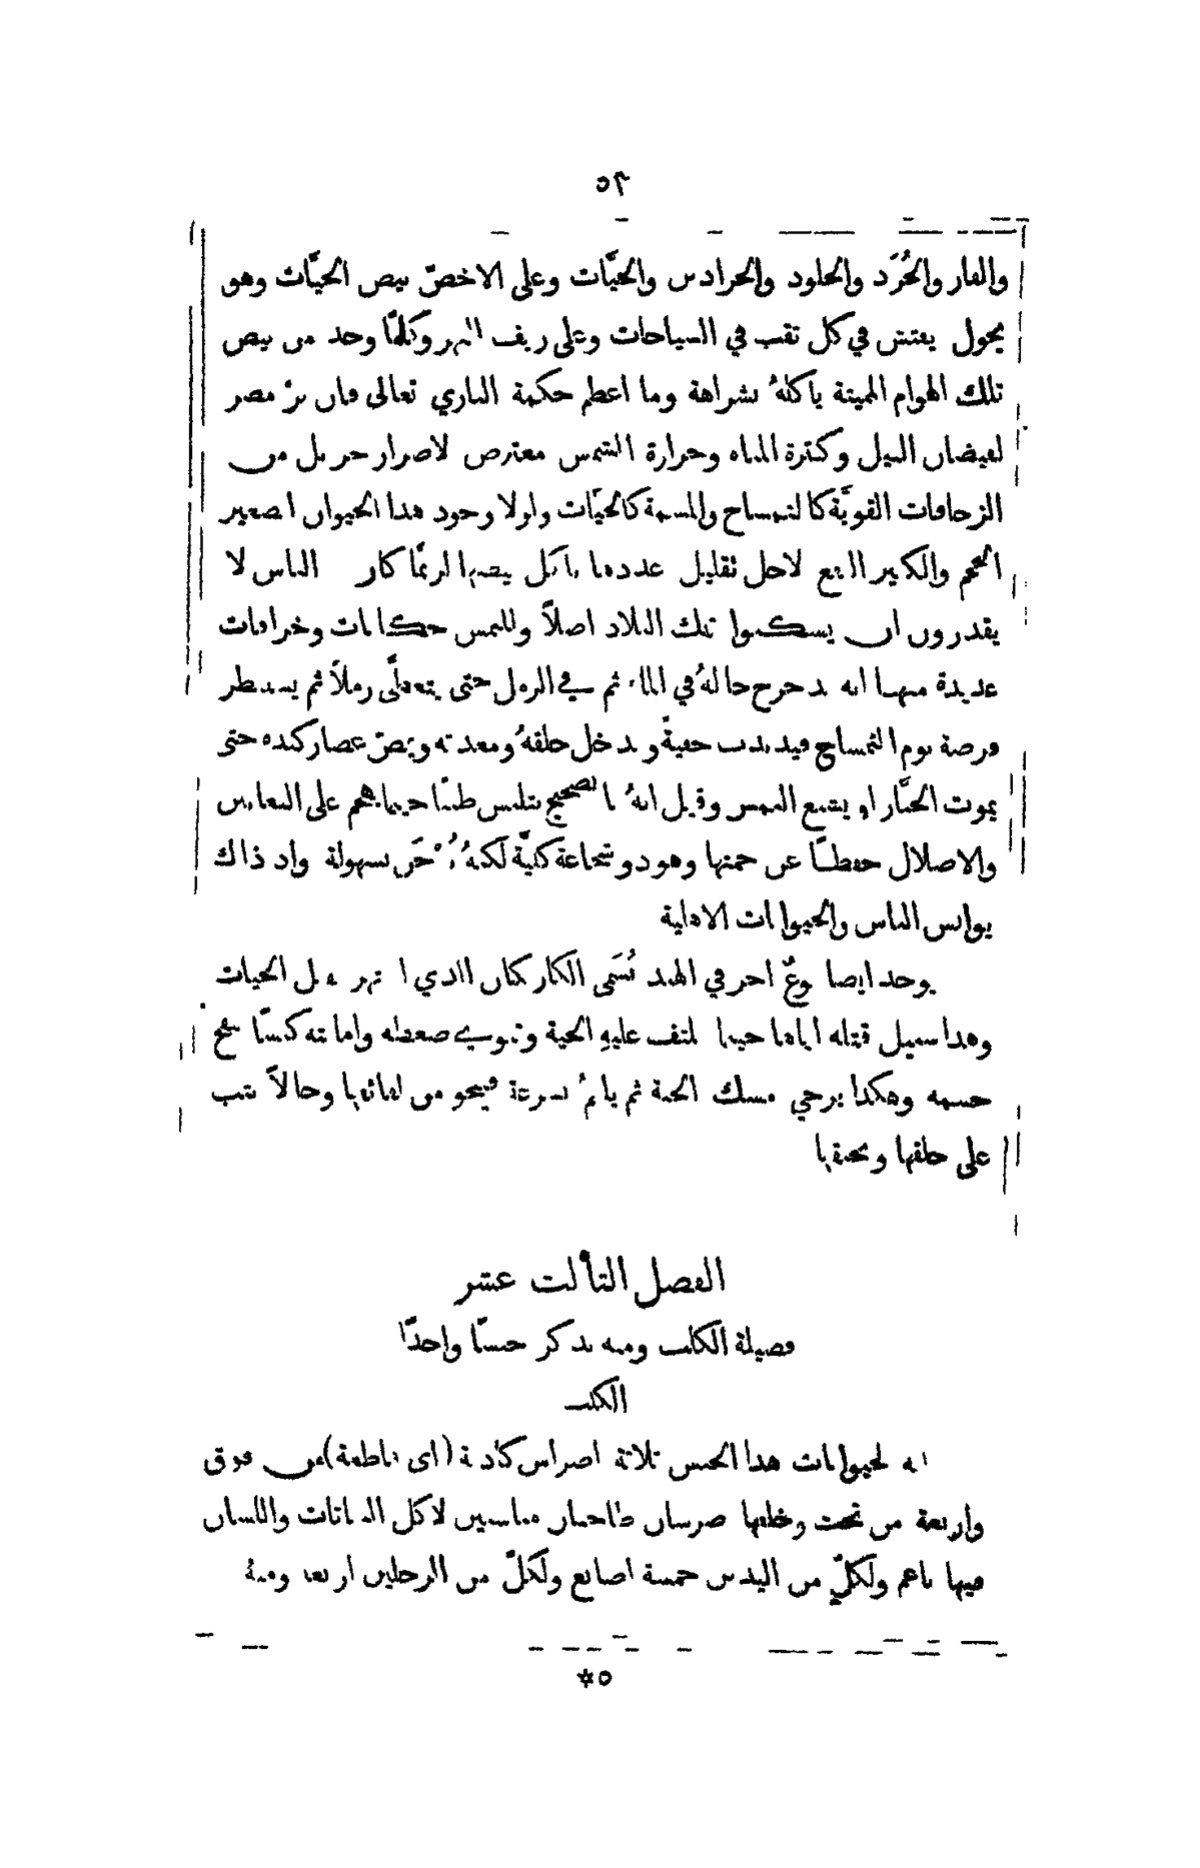 ٥٢
والفار والجُرَد والخلود والحرادين والحيَّات وعلى الاخصّ بيض الحيَّات وهو
يجول يفتش في كل ثقب في السياحات وعلى ريف النهر وكلما وجد من بيض
تلك الهوام المميتة ياكلهُ بشراهة وما اعظم حكمة الباري تعالى فان برّ مصر
لفيضان النيل وكثرة المياه وحرارة الشمس معترض لاضرار جزيل من
الزحافات القويَّة كالتمساح والمسمة كالحيَّات ولولا وجود هذا الحيوان الصغير
الحجم والكبير النفع لاجل تقليل عددها باكل بيضها لربمَّا كان الناس لا
يقدرون ان يسكنوا تلك البلاد اصلاً وللنمس حكايات وخرافات
عديدة منها انه يدحرج حالهُ في الماء ثم في الرمل حتى يتغطَّى رملاً ثم يستنظر
فرصة نوم التمساح فيدبدب خفيةً ويدخل حلقهُ ومعدته ويمصّ عصار كبده حتى
يموت الجبَّار او يشبع النمس وقيل انهُ بالصحيح يتلبس طينًا حينما يهجم على الثعابين
والاصلال حفظًا عن حمتها وهو ذو شجاعة كليَّة لكنهُ يُدَجَّن بسهولة واذ ذاك
يوانس الناس والحيوانات الاهلية
يوجد ايضا نوعٌ اخر في الهند يُسَمى الكاركان الذي اشتهر بقتل الحيات
وهذا سبيل قتله اياها حينما تلتف عليهِ الحية وتنوي ضغطه واماتته كبسًا ينفخ
جسمه وهكذا يرخي مسك الحية ثم يلمّ بسرعة فينجو من لفاتها وحالاً يثب
على حلقها ويخنقها
الفصل الثالث عشر
فصيلة الكلب ومنه نذكر جنسًا واحدًا
الكلب
انه لحيوانات هذا الجنس ثلاثة اضراس كاذبة (اي قاطعة) من فوق
واربعة من تحت وخلفها ضرسان طاحنان مناسبين لاكل النباتات واللسان
فيها ناعم ولكلٍّ من اليدين خمسة اصابع ولكلّ من الرجلين اربعة ومنهُ
٥*